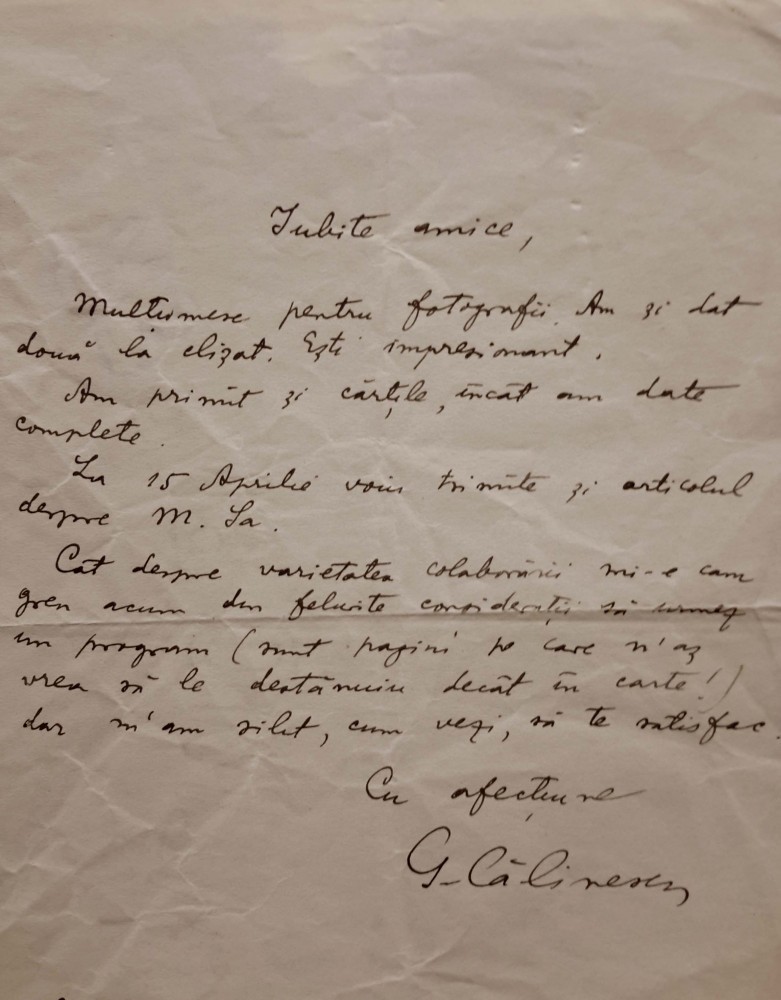 Iubite amice,
Mulțumesc pentru fotografii. Am și dat
două la clișat. Ești impresionant.
Am primit și cărțile, încât am date
complete.
La 15 Aprilie voiu trimite și articolul
despre M. Sa.
Cât despre varietatea colaborării mi-e cam
greu acum din felurite considerații să urmez
un program (sunt pagini pe care n'aș
vrea să le destăinuiu decât în carte!)
dar m'am silit, cum vezi, să te satisfac.
Cu afecțiune
G. Călinescu